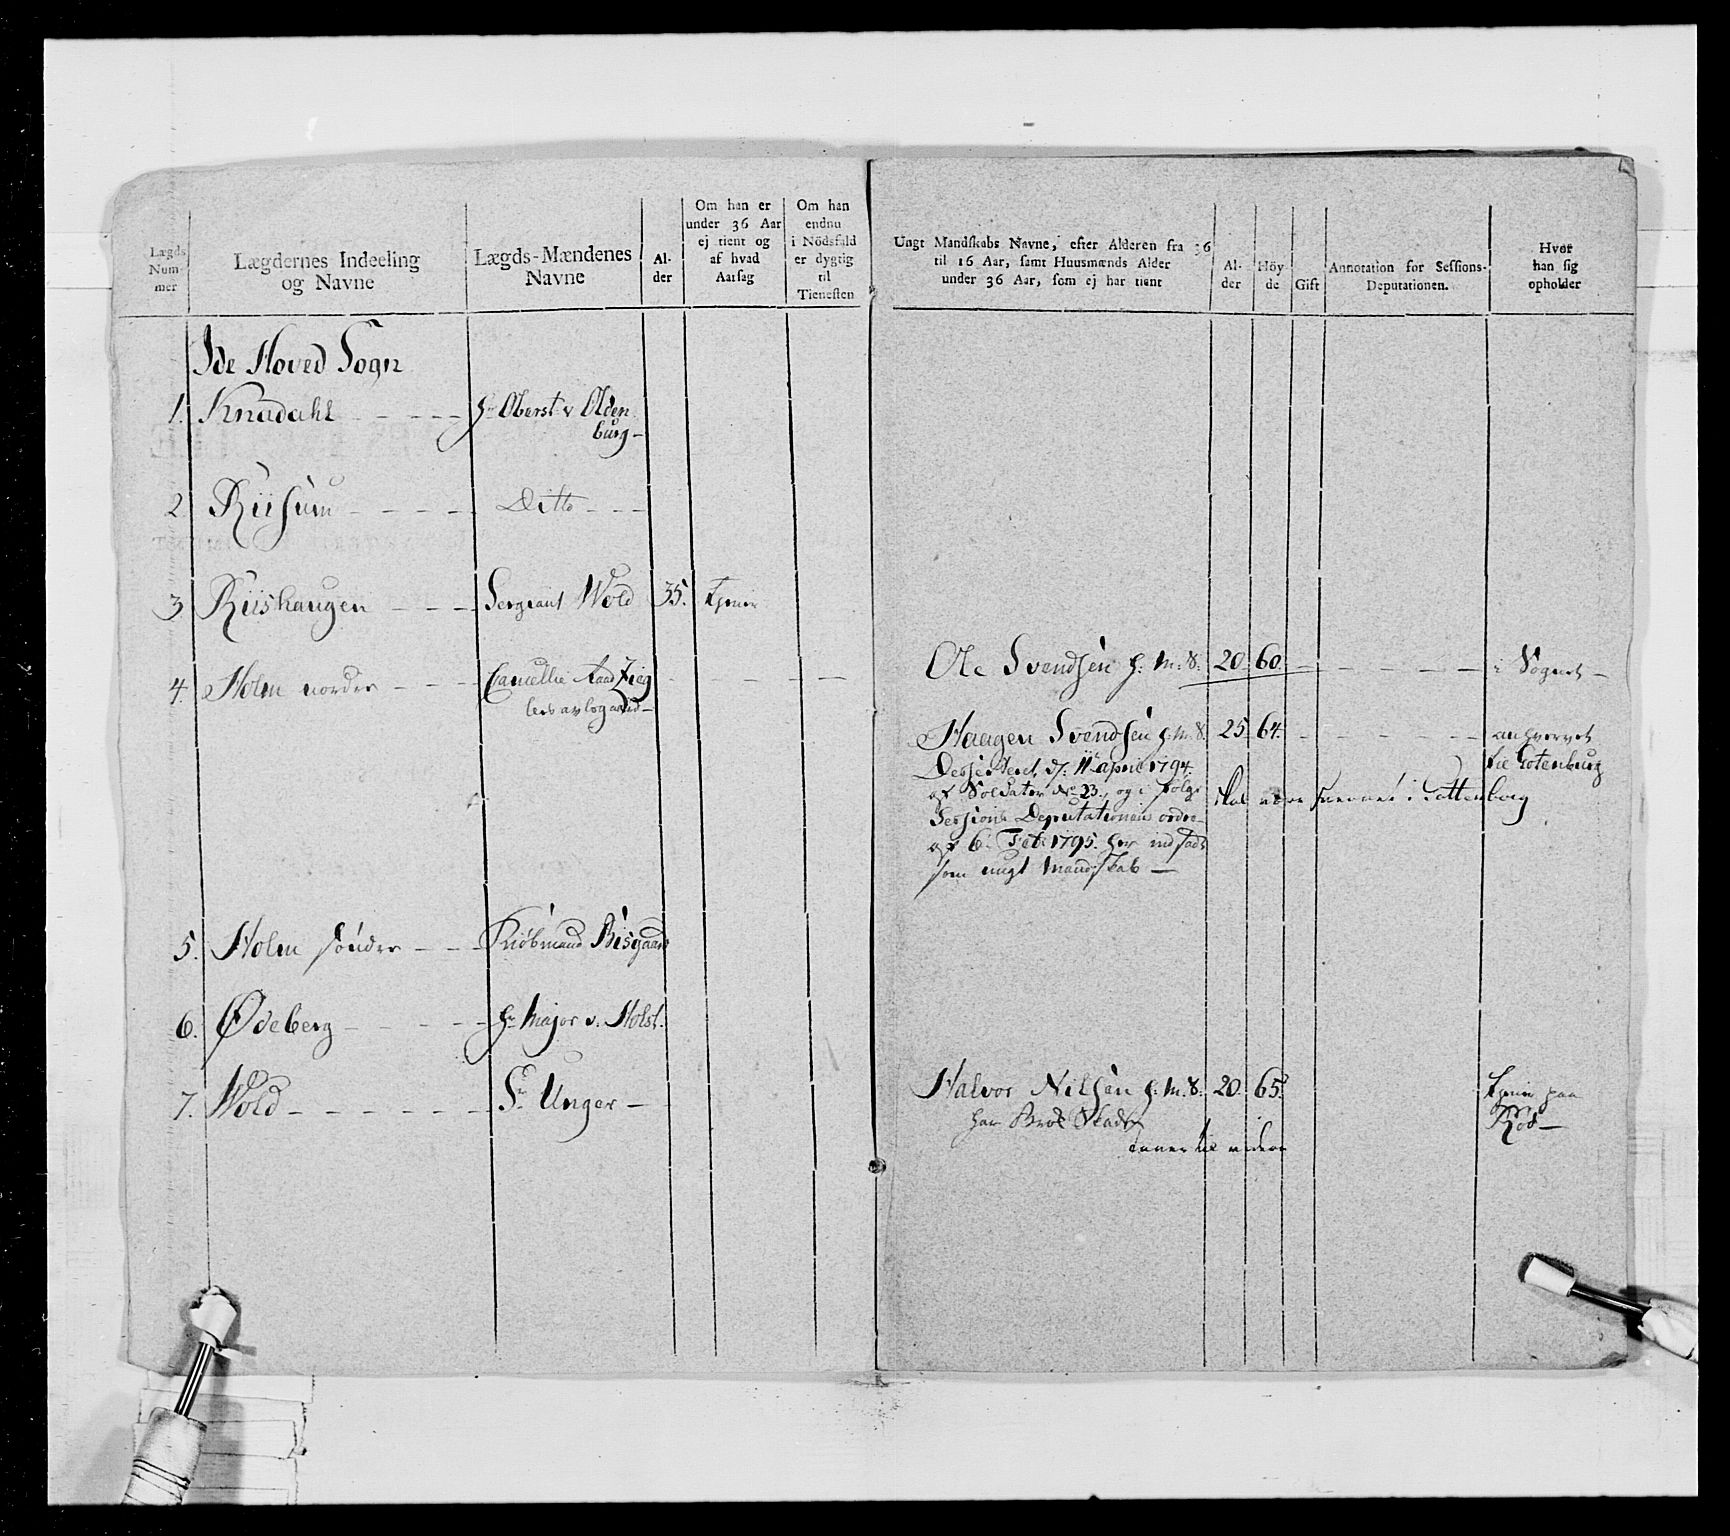 Lægds
Num-
mer
Lægdernes Indeeling
og Navne
Lægds-Mændenes
Navne
Al-
der
Om han er
under 36 Aar
ej tient og
af hvad
Aarsag
Om han
endnu
i Nödsfald
er dygtig
til
Tienesten
Ungt Mandskabs Navne, efter Alderen fra 36
til 16 Aar, samt Huusmænds Alder
under 36 Aar, som ej har tient
Al-
der
Höy-
de
Gift
Annotation for Sessions-
Deputationen.
Hvor
han sig
opholder
Ide Hoved Sogn
1. Knadahl - - - - Hr Oberst v Olden
burg -
2 Riisum - - - - Ditto - - -
3 Riishaugen - - - Sergeant Wold 35. tjener
4. Holm nordre - - - Cancellie Raad Zieg
lers avlsgaard -
Ole Svendsen h: m: S: 20. 60. - - - - - i Sognet -
Haagen Svendsen h: m: S. 25. 64. - - - - - anhvervet
til Gotenburg
Desertert d: 11 april 1794.
af Soldater No 23., og i følge skal være i Gottenborg
Sessions Deputationens ordre
af 6. Feb: 1795. her indsadt
som ungt Mandskab -
5. Holm søndre - - - Kiøbmand Bisgaard
6. Ødeberg - - - - - Hr Major v. Holst.
7. Wold - - - - - - Sr Unger -
Halvor Nilsen h: m: S: 20. 65. tjener paa
Rød -
har Brok Skade
til videre